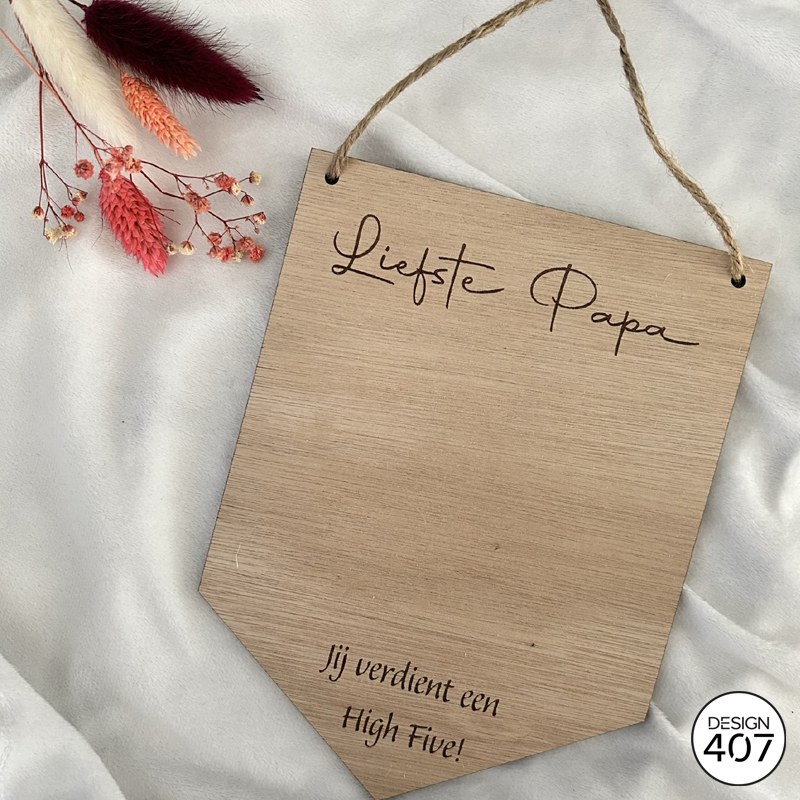 Liefste Papa
Jij verdient een
High Five!
DESIGN
407